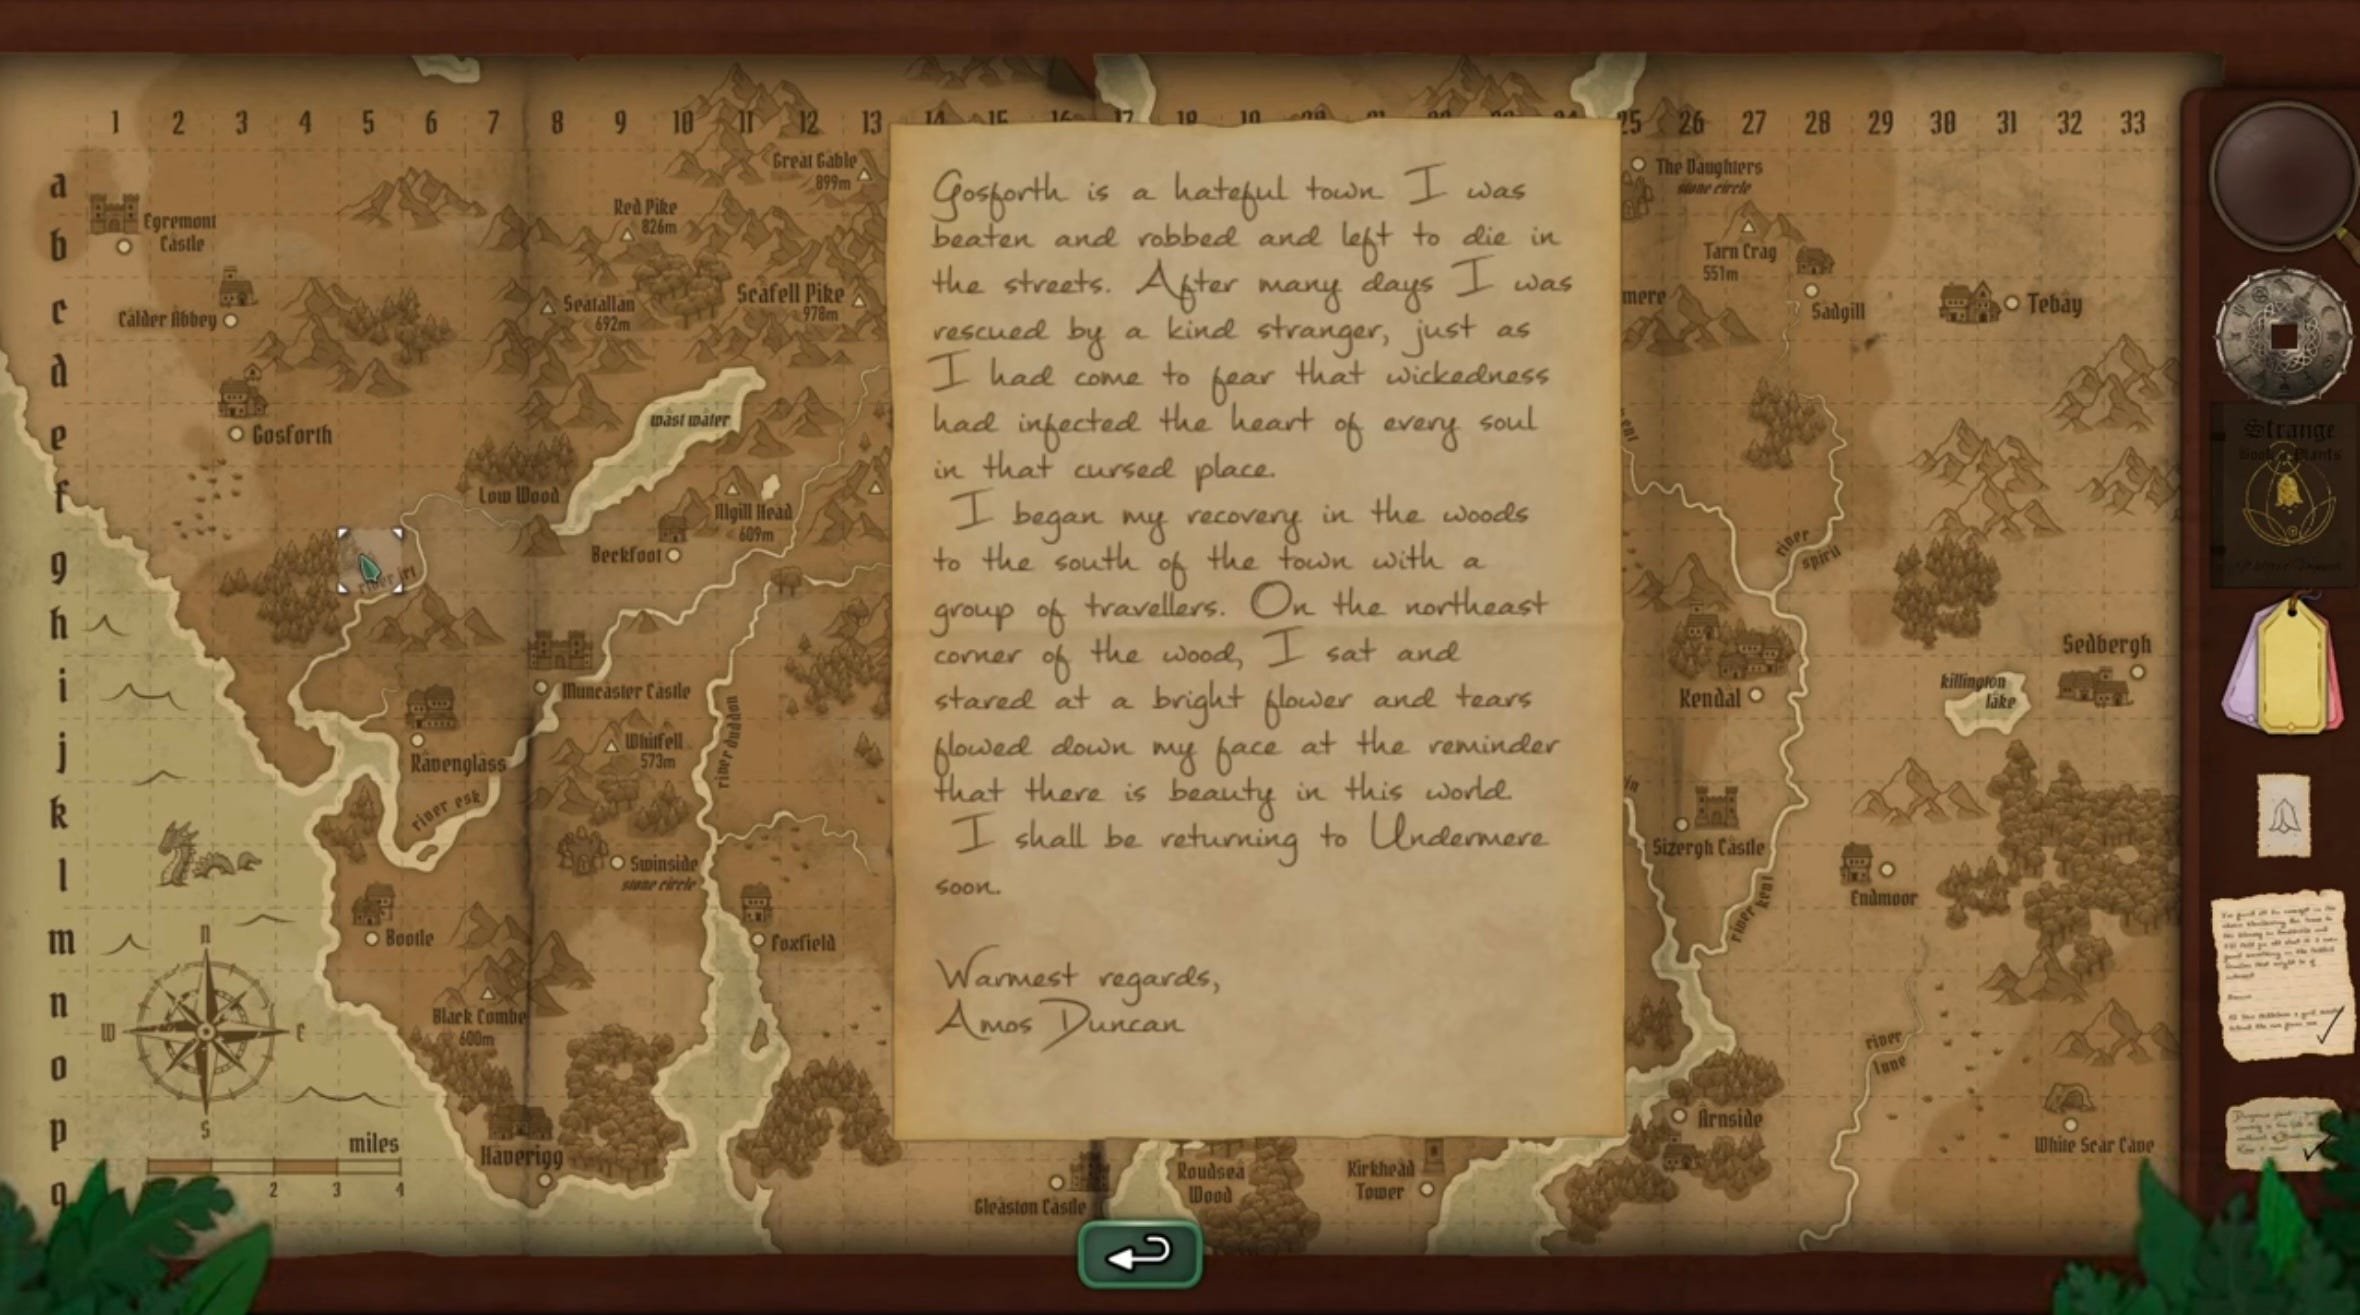 1 2 3 4 5 6 7 8 9 10 11 12 13 14 15 16 17 18 19 20 21 22 23 24 25 26 27 28 29 30 31 32 33
a
b
c
d
e
f
g
h
i
j
k
l
m
n
o
p
q
Egremont
Castle
Calder Abbey
Gosforth
Great Gable
899m
Red Pike
826m
Seatallan
692m
Scafell Pike
978m
wast water
Low Wood
Illgill Head
609m
Beckfoot
river irt
Muncaster Castle
Ravenglass
river esk
Whitfell
573m
river duddon
Swinside
stone circle
Bootle
Foxfield
Black Combe
600m
Haverigg
n
W
E
S
miles
2 3 4
Gosforth is a hateful town. I was
beaten and robbed and left to die in
the streets. After many days I was
rescued by a kind stranger, just as
I had come to fear that wickedness
had infected the heart of every soul
in that cursed place.
I began my recovery in the woods
to the south of the town with a
group of travellers. On the northeast
corner of the wood, I sat and
stared at a bright flower and tears
flowed down my face at the reminder
that there is beauty in this world.
I shall be returning to Undermere
soon.
Warmest regards,
Amos Duncan
Gleaston Castle
Roudsea
Wood
Kirkhead
Tower
The Daughters
stone circle
Tarn Crag
551m
mere
Sadgill
Tebay
river
spirit
Kendal
killington
lake
Sedbergh
Sizergh Castle
river kent
Endmoor
river
lune
Arnside
White Scar Cave
Strange
Book of Plants